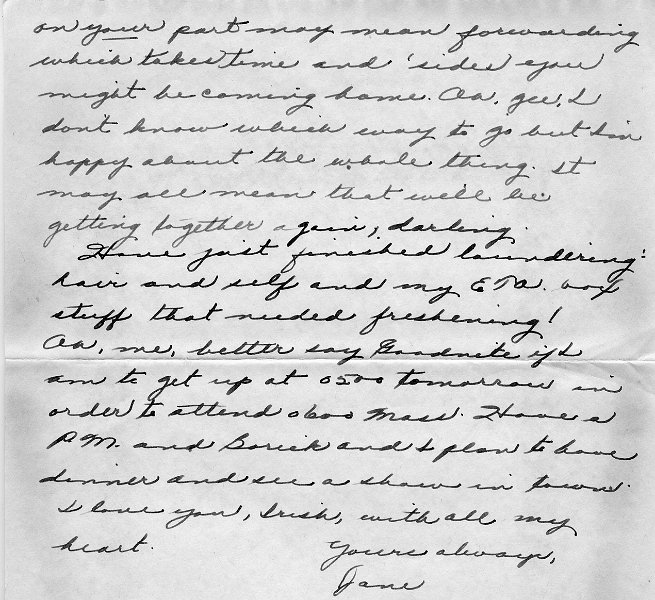 on your part may mean forwarding
which takes time and 'sides you
might be coming home. Oh, gee, I
don't know which way to go but I'm
happy about the whole thing. It
may all mean that we'll be
getting together again, darling.
Have just finished laundering:
hair and self and my E.T.O. box
stuff that needed freshening!
Oh, me, better say Goodnite if I
am to get up at 0500 tomorrow in
order to attend 0600 Mass. Have a
P.M. and Borick and I plan to have
dinner and see a show in town.
I love you, Irish, with all my
heart.
Yours always,
Jane